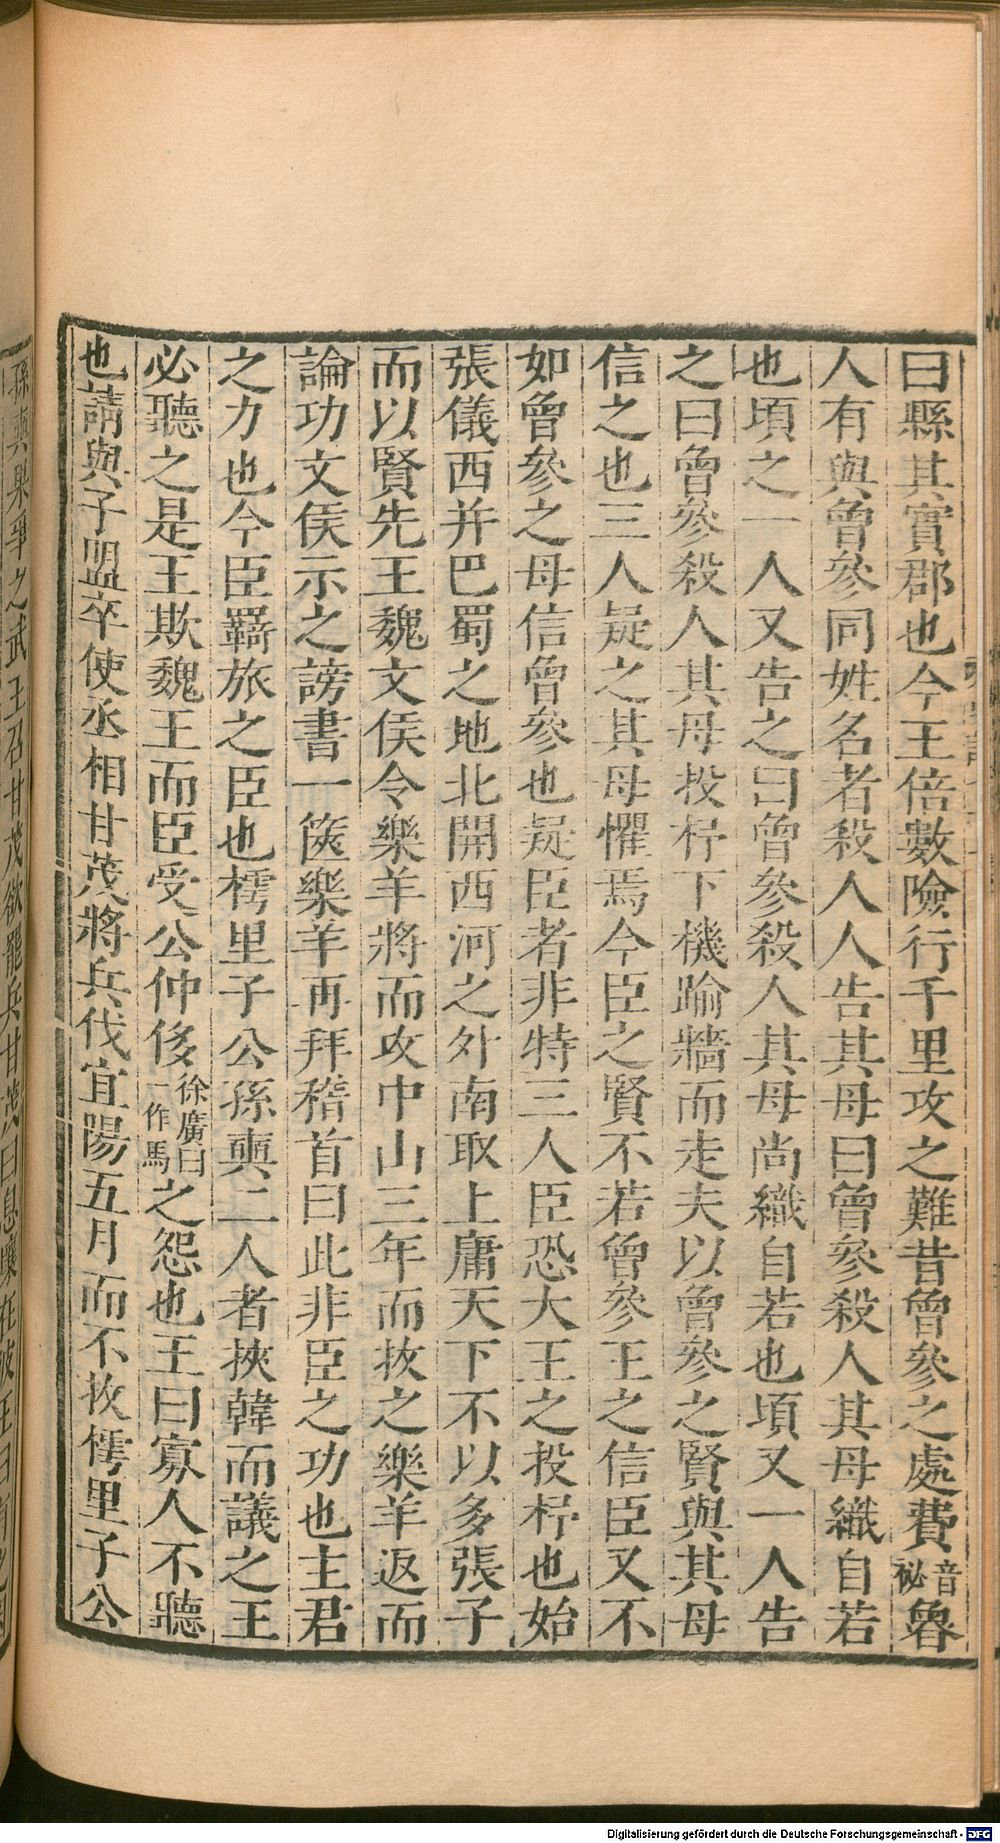 曰縣其實郡也今王倍數險行千里攻之難昔曾參之處費音祕魯
人有與曾參同姓名者殺人人告其母曰曾參殺人其母織自若
也頃之一人又告之曰曾參殺人其母尚織自若也頃又一人告
之曰曾參殺人其母投杼下機踰牆而走夫以曾參之賢與其母
信之也三人疑之其母懼焉今臣之賢不若曾參王之信臣又不
如曾參之母信曾參也疑臣者非特三人臣恐大王之投杼也始
張儀西并巴蜀之地北開西河之外南取上庸天下不以多張子
而以賢先王魏文侯令樂羊將而攻中山三年而拔之樂羊返而
論功文侯示之謗書一篋樂羊再拜稽首曰此非臣之功也主君
之力也今臣羈旅之臣也樗里子公孫奭二人者挾韓而議之王
必聽之是王欺魏王而臣受公仲侈徐廣曰一作馬之怨也王曰寡人不聽
也請與子盟卒使丞相甘茂將兵伐宜陽五月而不拔樗里子公
孫奭果爭之武王召甘茂欲罷兵甘茂曰息壤在彼王曰有之
Digitalisierung gefördert durch die Deutsche Forschungsgemeinschaft - DFG